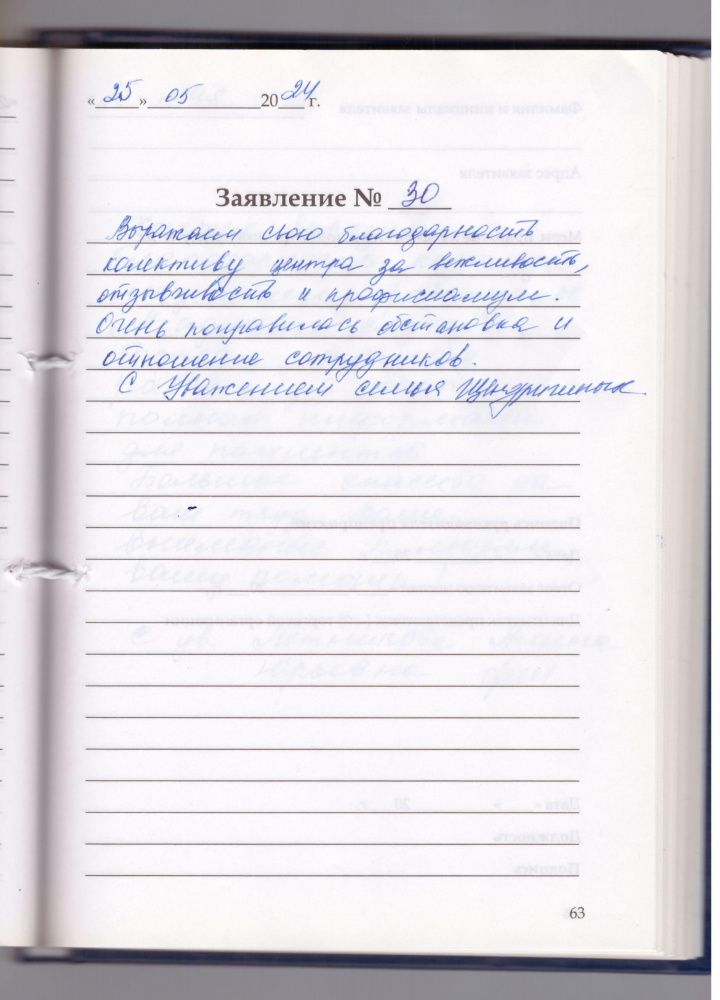 «25» 05 2024 г.
Заявление № 30
Выражаем свою благодарность
колективу центра за вежливость,
отзывчивость и профисиамузм.
Очень понравилось обстановка и
отношение сотрудников.
С Уважением семья
63